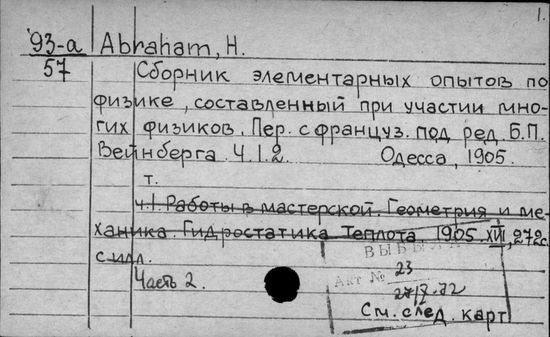 1.
93-а Abraham, H.
57 Сборник элементарных опытов по
физике, составленный при участии мно-
гих физиков. Пер. с француз. под ред. Б.П.
Вейнберга. Ч.1.2. Одесса, 1905.
т.
ч.1. Работы в мастерской. Геометрия и ме-
ханика. Гидростатика. Теплота. 1905. XVI, 272с.
с илл.
Часть 2.
АКТ № 23
См. след. карт